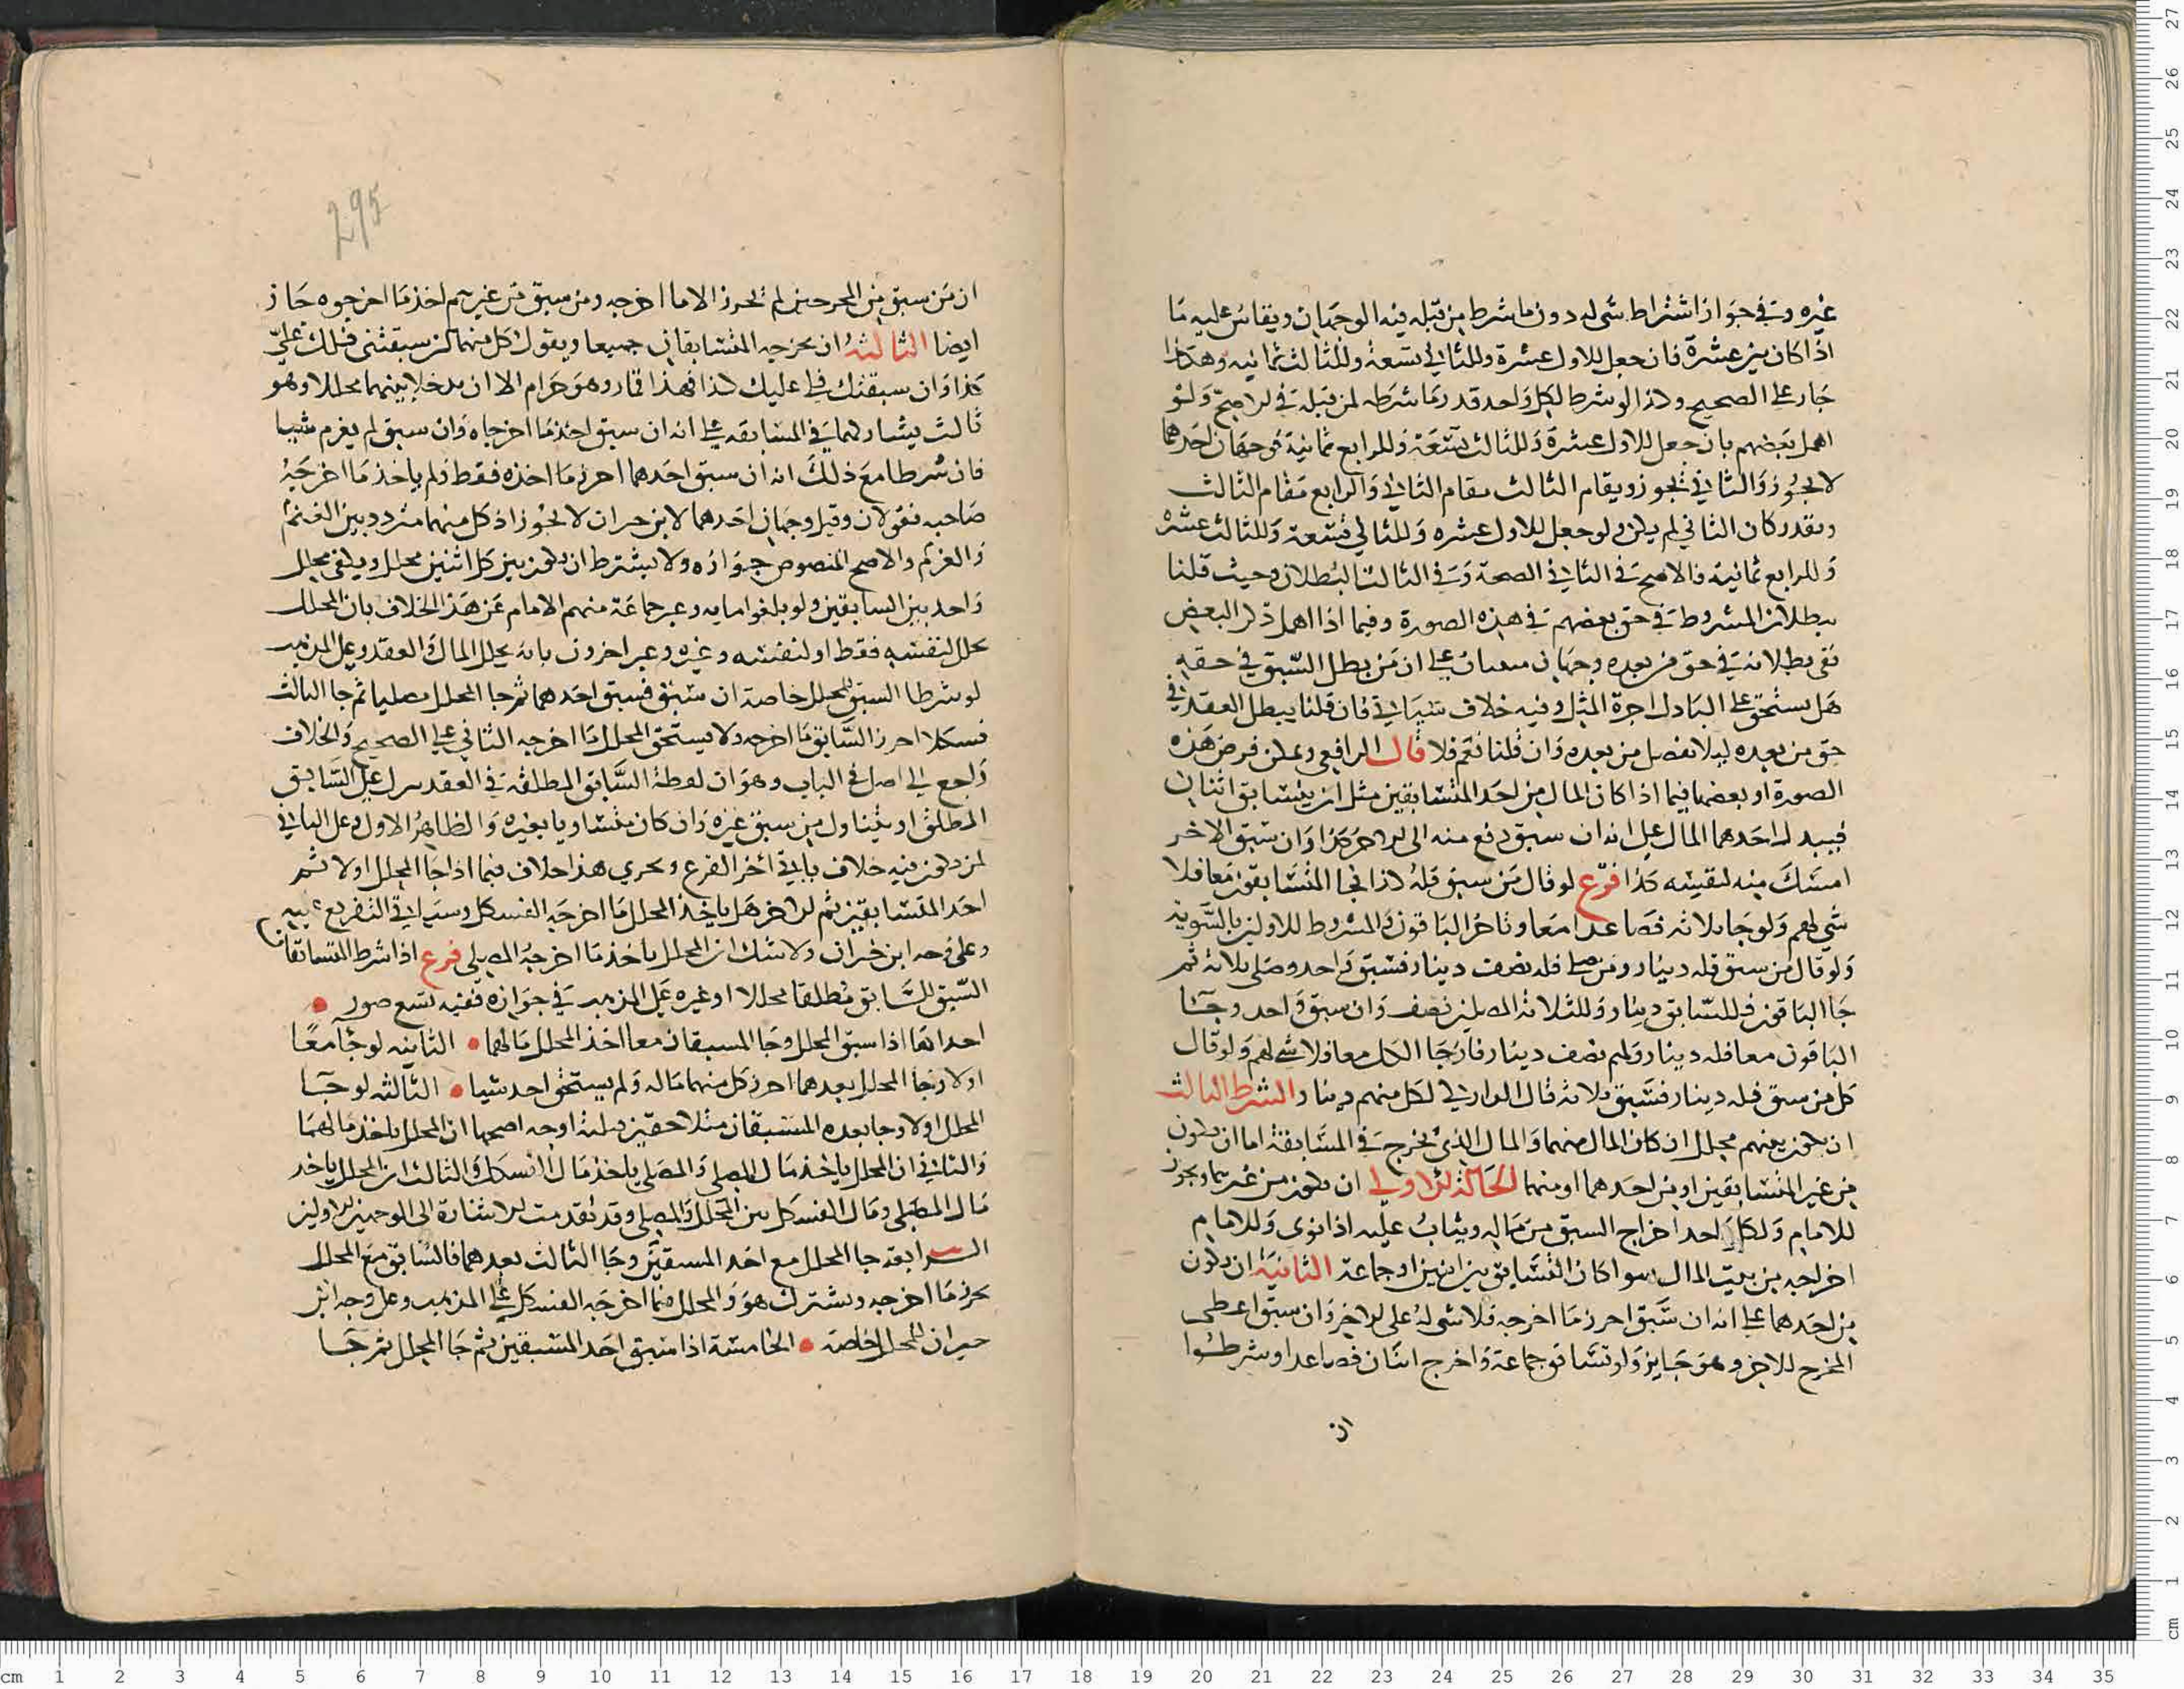 غيره وفي جواز اشتراط شي له دون ما شرط من قبله فيه الوجهان ويقاس عليه ما
اذا كان بين عشرة فان جعل للاول عشرة وللثاني تسعة وللثالث ثمانيه وهكذا
جاز على الصحيح وكذا لو شرط لكل واحد قدر ما شرطه لمن قبله في الاصح ولو
اهمل بعضهم بان جعل للاول عشرة وللثالث تسعة وللرابع ثمانية فوجهان احدهما
لا يجوز والثاني يجوز ويقام الثالث مقام الثاني والرابع مقام الثالث
ويقدر كان الثاني لم يكن ولو جعل للاول عشره وللثاني تسعة وللثالث عشرة
وللرابع ثمانية فالاصح في الثاني الصحة وفي الثالث البطلان وحيث قلنا
ببطلان المشروط في حق بعضهم في هذه الصورة وفيما اذا اهمل ذكر البعض
ففي بطلانه في حق من بعده وجهان مبنيان على ان من بطل السبق في حقه
هل يستحق على الباذل اجرة المثل وفيه خلاف سياتي فان قلنا يبطل العقد في
حق من بعده ليلا يفضل من بعده وان قلنا نعم فلا قال الرافعي ويمكن فرض هذه
الصورة او بعضها فيما اذا كان المال من احد المتسابقين مثل ان يتسابق اثنان
فيبذل احدهما المال على انه ان سبق دفع منه الى الاخر كذا وان سبق الاخر
امسك منه لنفسه كذا فرع لو قال من سبق فله كذا فجا المتسابقون معا فلا
شي لهم ولو جا ثلاثه فصاعدا معا وتاخر الباقون فالمشروط للاولين بالسويه
ولو قال من سبق فله دينار ومن صلى فله نصف دينار فسبق واحد وصلى ثلاثه ثم
جا الباقون فللسابق دينار وللثلاثه المصلين نصف وان سبق واحد وجا
الباقون معا فله دينار ولهم نصف دينار فان جا الكل معا فلا شي لهم ولو قال
كل من سبق فله دينار فسبق ثلاثه قال الداركي لكل منهم دينار الشرط الثالث
ان يكون بينهم محلل ان كان المال منهما والمال الذي يخرج في المسابقة اما ان يكون
من غير المتسابقين او من احدهما او منهما الحالة الاولى ان يكون من غيرهما ويجوز
للامام ولكل احد اخراج السبق من ماله ويثاب عليه اذا نوى وللامام
اخراجه من بيت المال سوا كان التسابق بين اثنين او جماعة الثانية ان يكون
من احدهما على انه ان سبق احرز ما اخرجه فلا شي له على الاخر وان سبق اعطى
المخرج للاخر وهو جايز ولو تسابق جماعة واخرج اثنان فصاعدا وشرطوا
ان
295
ان من سبق من المخرجين لم يحرز الا ما اخرجه ومن سبق من غيرهم اخذ ما اخرجوه جاز
ايضا الثالثة ان يخرجه المتسابقان جميعا ويقول كل منهما ان سبقتني فلك علي
كذا وان سبقتك فلي عليك كذا فهذا قمار وهو حرام الا ان يدخلا بينهما محللا وهو
ثالث يشاركهما في المسابقه على انه ان سبق اخذ ما اخرجاه وان سبق لم يغرم شيا
فان شرطا مع ذلك انه ان سبق احدهما احرز ما اخذه فقط ولم ياخذ ما اخرجه
صاحبه فقولان وقيل وجهان احدهما لابن خيران لا يجوز اذ كل منهما متردد بين الغنم
والغرم والاصح المنصوص جوازه ولا يشترط ان يكون بين كل اثنين محلل ويكفي محلل
واحد بين السابقين ولو بلغوا مايه وعبر جماعة منهم الامام عن هذا الخلاف بان المحلل
يحلل لنفسه فقط او لنفسه وغيره وعبر اخرون بانه يحلل المال والعقد وعلى المذهب
لو شرطا السبق للمحلل خاصة ان سبق فسبق احدهما ثم جا المحلل مصليا ثم جا الثالث
فسكلا احرز السابق ما اخرجه ولا يستحق المحلل ما اخرجه الثاني على الصحيح والخلاف
راجع الى اصل في الباب وهو ان لفظة السابق المطلقة في العقد هل على السابق
المطلق او يتناول من سبق غيره وان كان متساويا بغيره والظاهر الاول وعلى الثاني
لمن يكون فيه خلاف ياتي اخر الفرع ويجري هذا خلاف فيما اذا جا المحلل اولا ثم
احد المتسابقين ثم الاخر هل ياخذ المحلل ما اخرجه الفسكل وسياتي التفريع عليه
وعلى وجه ابن خيران ولا شك ان المحلل ياخذ ما اخرجه المصلي فرع اذا شرط المتسابقان
السبق للسابق مطلقا محللا او غيره على المذهب في جوازه ففيه تسع صور
احداها اذا سبق المحلل وجا المستبقان معا اخذ المحلل مالهما الثانيه لو جا معا
اولا وجا المحلل بعدهما احرز كل منهما ماله ولم يستحق احد شيا الثالثه لو جا
المحلل اولا وجا بعده المستبقان متلاحقين فثلثة اوجه اصحها ان المحلل ياخذ مالهما
والثاني ان المحلل ياخذ مال المصلي والمصلي ياخذ مال الفسكل والثالث ان المحلل ياخذ
مال المصلي ومال الفسكل بين المحلل والمصلي وقد تقدمت الاشارة الى الوجهين الاولين
الرابعة جا المحلل مع احد المستبقين وجا الثالث بعدهما فالسابق مع المحلل
يحرز ما اخرجه ويشترك هو والمحلل فيما اخرجه الفسكل على المذهب وعلى وجه ابن
خيران للمحلل خاصة الخامسة اذا سبق احد المستبقين ثم جا المحلل ثم جا